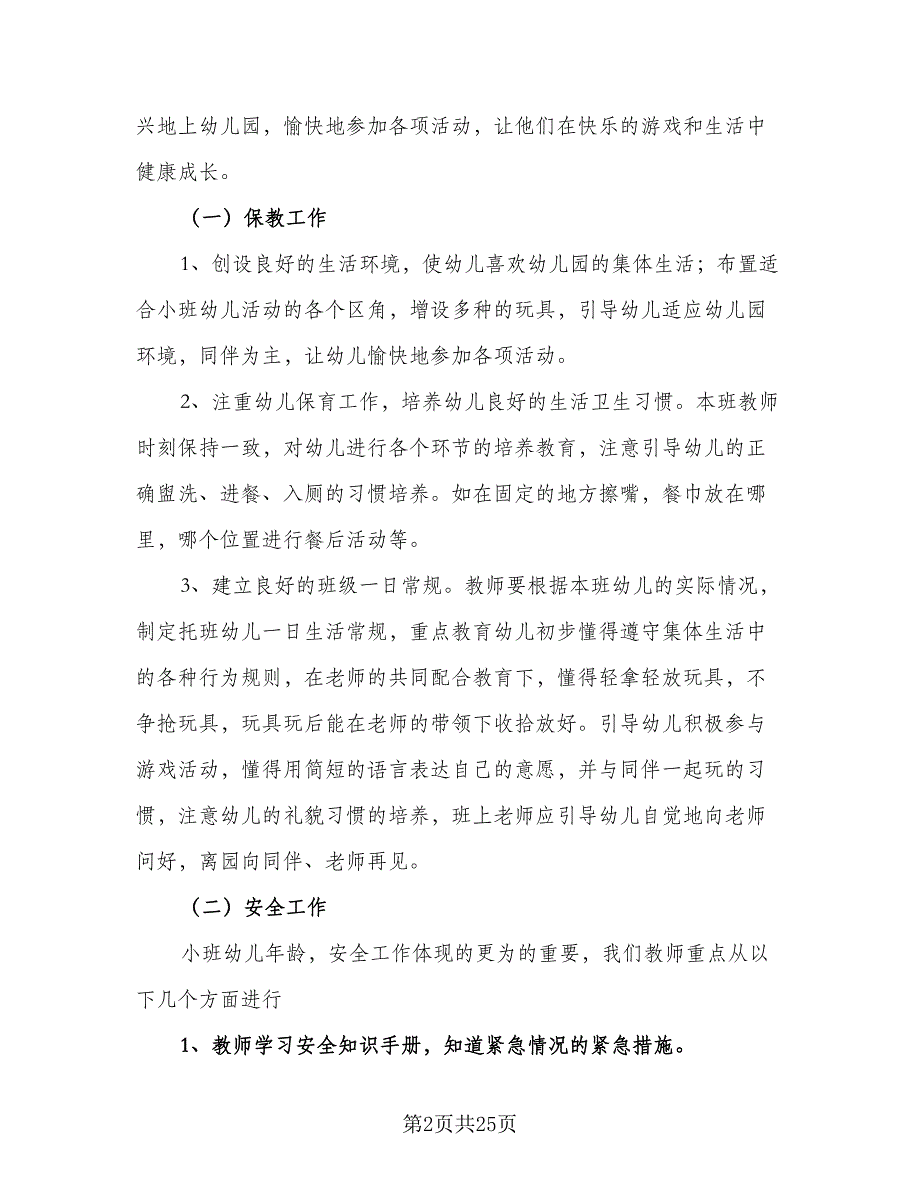 兴地上幼儿园，愉快地参加各项活动，让他们在快乐的游戏和生活中
健康成长。
（一）保教工作
1、创设良好的生活环境，使幼儿喜欢幼儿园的集体生活；布置适
合小班幼儿活动的各个区角，增设多种的玩具，引导幼儿适应幼儿园
环境，同伴为主，让幼儿愉快地参加各项活动。
2、注重幼儿保育工作，培养幼儿良好的生活卫生习惯。本班教师
时刻保持一致，对幼儿进行各个环节的培养教育，注意引导幼儿的正
确盥洗、进餐、入厕的习惯培养。如在固定的地方擦嘴，餐巾放在哪
里，哪个位置进行餐后活动等。
3、建立良好的班级一日常规。教师要根据本班幼儿的实际情况，
制定托班幼儿一日生活常规，重点教育幼儿初步懂得遵守集体生活中
的各种行为规则，在老师的共同配合教育下，懂得轻拿轻放玩具，不
争抢玩具，玩具玩后能在老师的带领下收拾放好。引导幼儿积极参与
游戏活动，懂得用简短的语言表达自己的意愿，并与同伴一起玩的习
惯，注意幼儿的礼貌习惯的培养，班上老师应引导幼儿自觉地向老师
问好，离园向同伴、老师再见。
（二）安全工作
小班幼儿年龄，安全工作体现的更为的重要，我们教师重点从以
下几个方面进行
1、教师学习安全知识手册，知道紧急情况的紧急措施。
第2页共25页